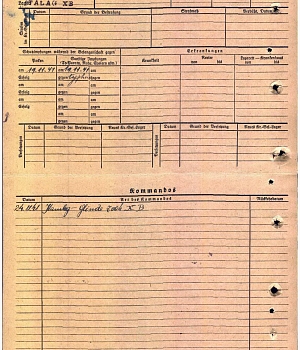 Datum Grund der Bestrafung Strafmaß
Schutzimpfungen während der Gefangenschaft gegen Erkrankungen
Pocken Sonstige Impfungen
(Ty.Paratyph., Ruhr, Cholera usw.) Krankheit Revier
von bis Lazarett — Krankenhaus
von bis
am 19.11.41 am 19.11.41
Erfolg gegen Typhus
am am
Erfolg gegen
am am
Erfolg gegen
am am
Erfolg gegen
Datum Grund der Versetzung Neues Kr.-Gef.-Lager Datum Grund der Versetzung Neues Kr.-Gef.-Lager
Versetzungen Versetzungen
Kommandos
Datum Art des Kommandos Rückkehrdatum
24.11.41 X D